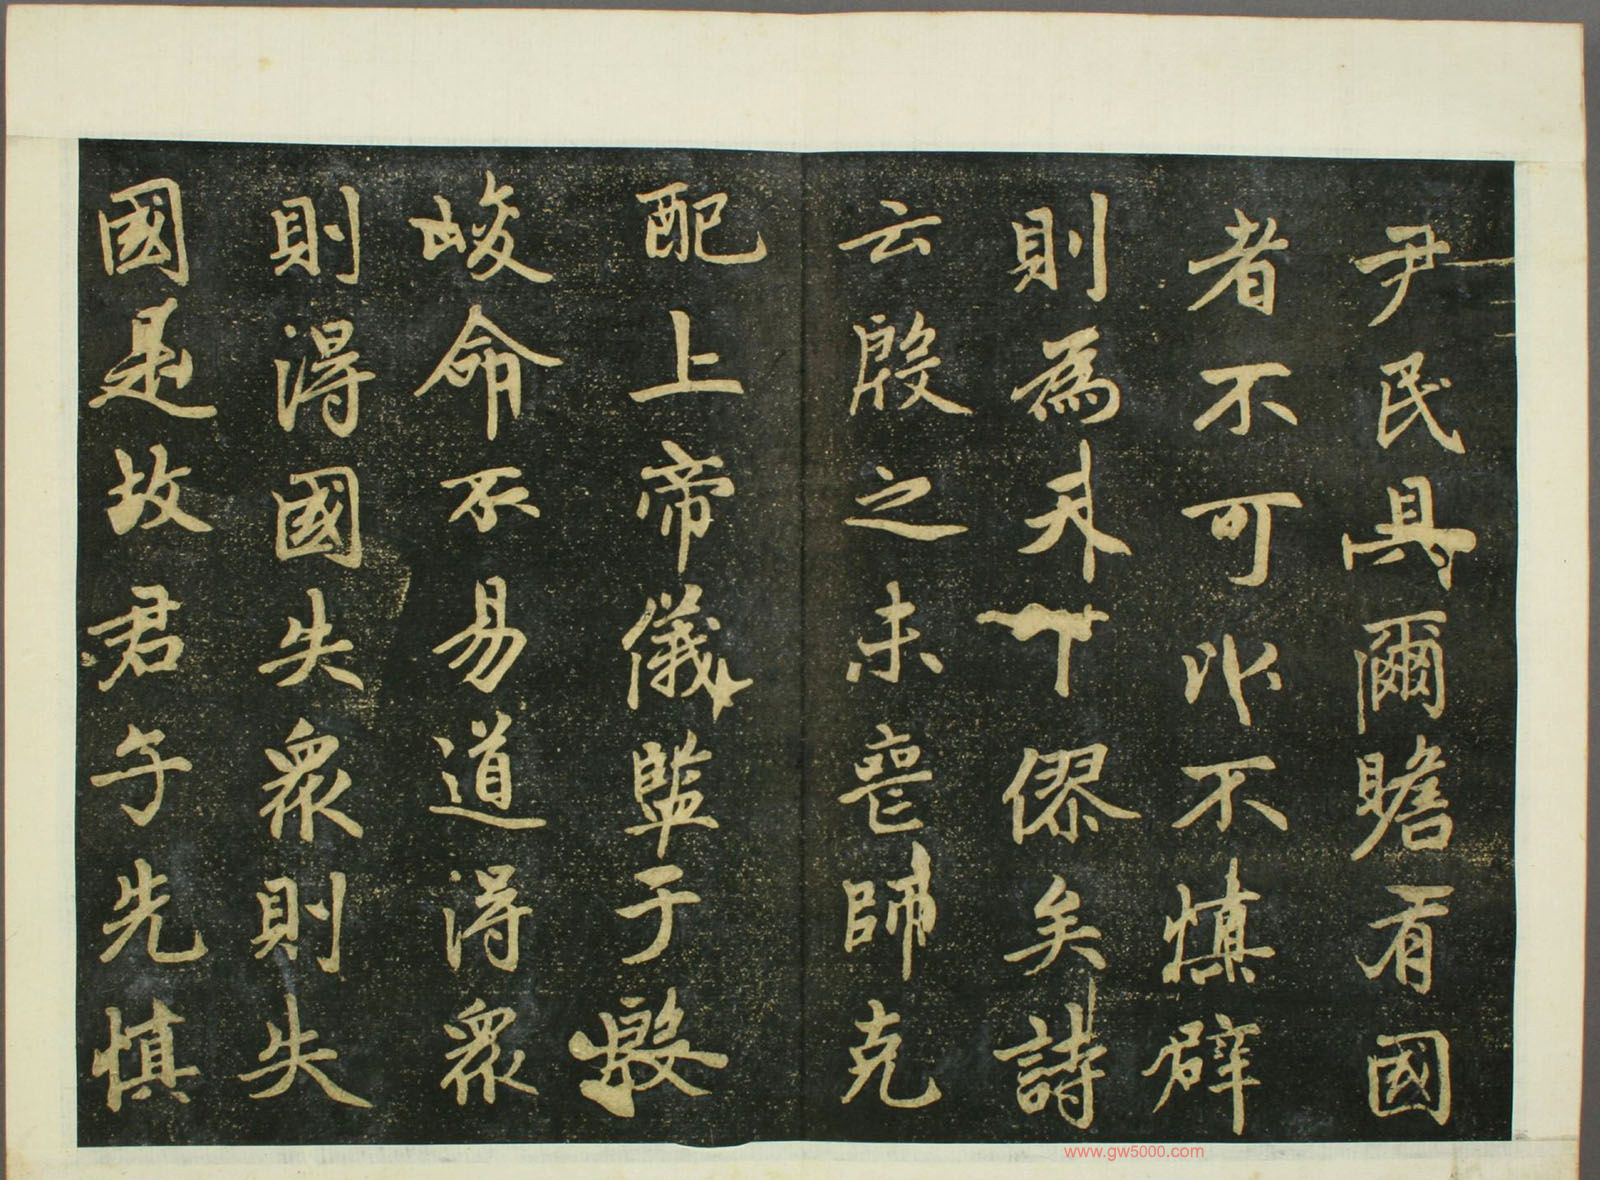 尹民具爾瞻有國
者不可以不慎辟
則為天下僇矣詩
云殷之未喪師克
配上帝儀監于殷
峻命不易道得衆
則得國失衆則失
國是故君子先慎
www.gw5000.com